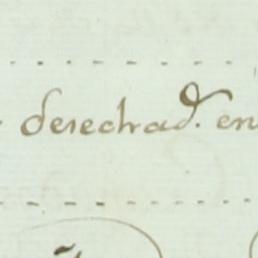 derechad. en